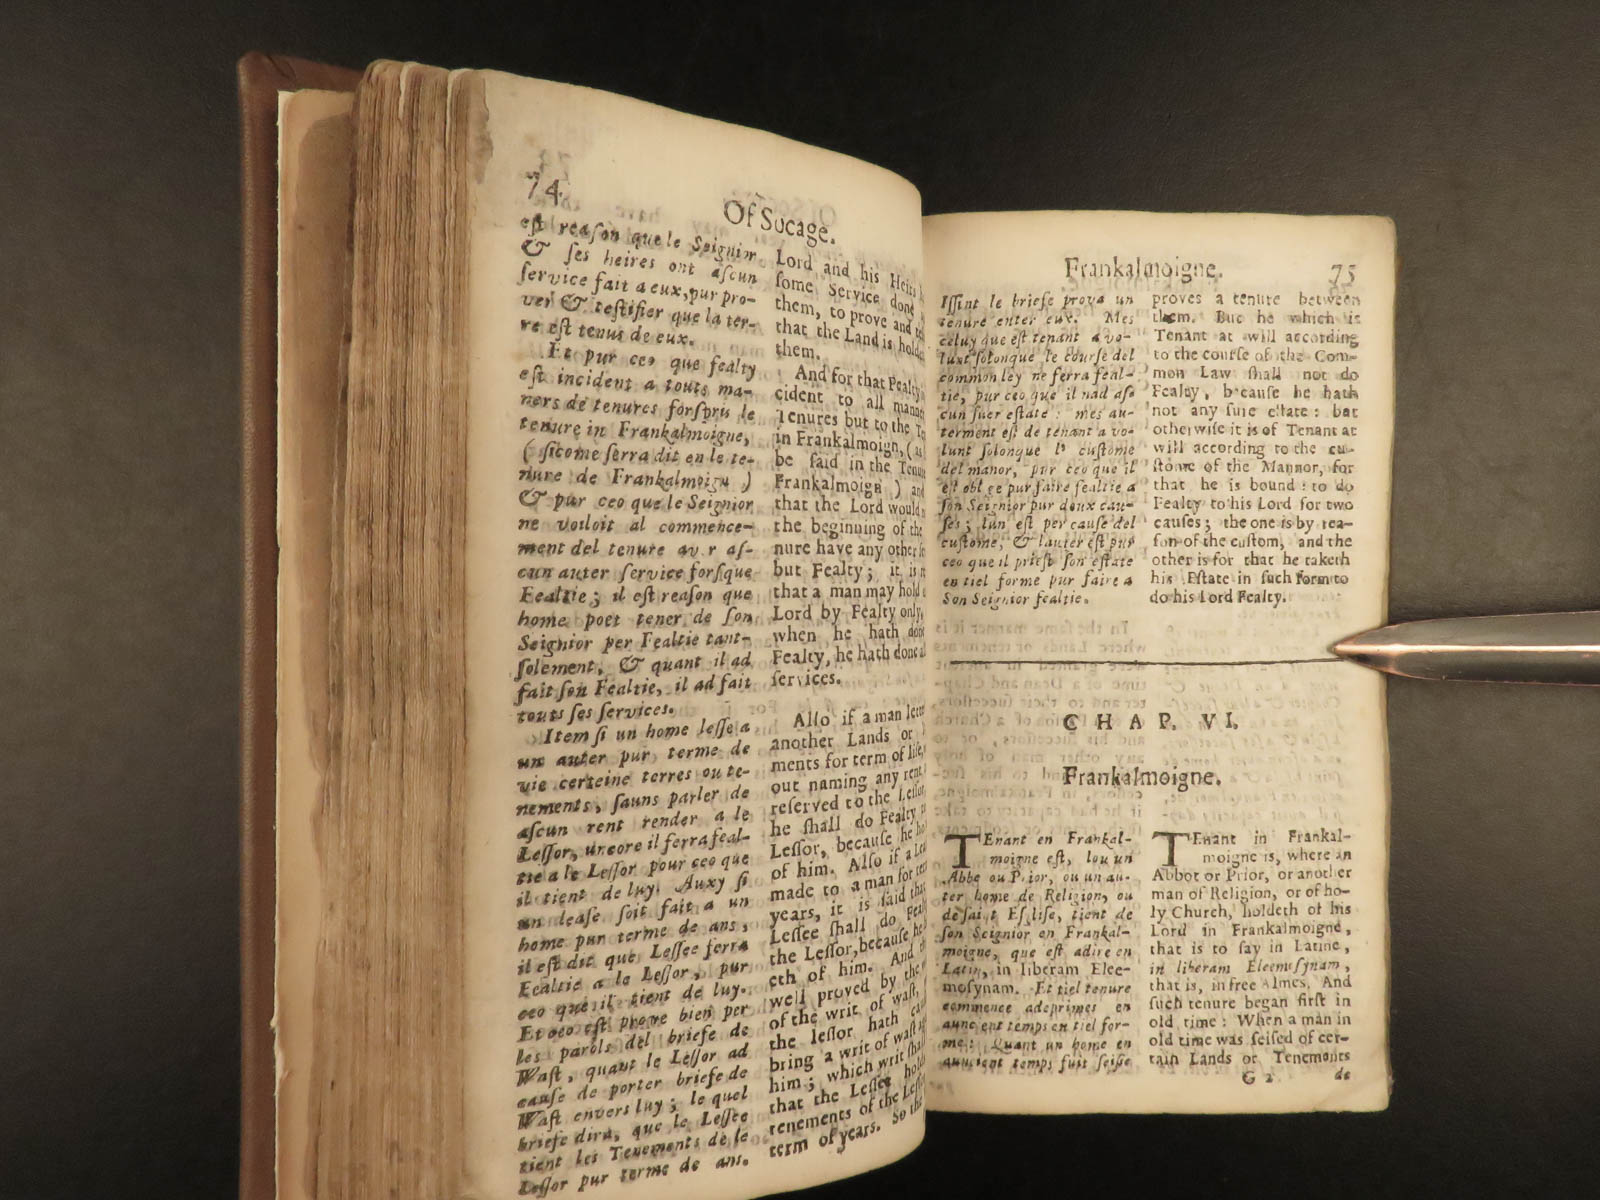 74
Of Socage.
est reason que le Seignior
& ses heires ont ascun
service fait a eux, pur pro-
ver & testifier que la ter-
re est tenus de eux.
Et pur ceo que fealty
est incident a touts ma-
ners de tenures forspris le
tenure in Frankalmoigne,
( sicome serra dit en le te-
nure de Frankalmoign )
& pur ceo que le Seignior
ne voiloit al commence-
ment del tenure av r as-
cun auter service forsque
Fealtie; il est reason que
home poet tener de son
Seignior per Fealtie tant-
solement, & quant il ad
fait son Fealtie, il ad fait
touts ses services.
Item si un home lesse a
un auter pur terme de
vie certeine terres ou te-
nements, sauns parler de
ascun rent render a le
Lessor, uncore il ferra feal-
tie a le Lessor pour ceo que
il tient de luy. Auxy si
un lease soit fait a un
home pur terme de ans,
il est dit que Lessee ferra
Fealtie a le Lessor, pur
ceo que il tient de luy.
Et ceo est prove bien per
les parols del briefe de
Wast, quant le Lessor ad
cause de porter briefe de
Wast envers luy; le quel
briefe dira, que le Lessee
tient les Tenements de le
Lessor pur terme de ans.
Lord and his Heirs
some Service done
them, to prove and
that the Land is
them.
And for that Fealty
cident to all
Tenures but to the
in Frankalmoign, (
be said in the
Frankalmoign ) and
that the Lord would
the beginning of the
nure have any other
but Fealty; it is
that a man may hold
Lord by Fealty only,
when he hath done
Fealty, he hath done
services.
Also if a man
another Lands or
ments for term of life,
out naming any rent
reserved to the Lessor
he shall do Fealty
Lessor, because he
of him. Also if a
made to a man for
years, it is said that
Lessee shall do
the Lessor, because he
eth of him. And
well proved by the
of the writ of wast,
the lessor hath
bring a writ of wast
him; which writ
that the Lessee
tenements of the
term of years. So the
Frankalmoigne.
75
Issint le briefe prova un
tenure enter eux. Mes
celuy que est tenant a vo-
lunt solonque le course del
common ley ne ferra feal-
tie, pur ceo que il nad as-
cun suer estate: mes au-
terment est de tenant a vo-
lunt solonque le custome
del manor, pur ceo que il
est oblige pur faire fealtie a
son Seignior pur deux cau-
ses; lun est per cause del
custome, & lauter est pur
ceo que il priest son estate
en tiel forme pur faire a
Son Seignior fealtie.
proves a tenure between
them. But he which is
Tenant at will according
to the course of the Com-
mon Law shall not do
Fealty, because he hath
not any sure estate: but
otherwise it is of Tenant at
will according to the cu-
stome of the Mannor, for
that he is bound to do
Fealty to his Lord for two
causes; the one is by rea-
son of the custom, and the
other is for that he taketh
his Estate in such form to
do his Lord Fealty.
CHAP. VI.
Frankalmoigne.
TEnant en Frankal-
moigne est, lou un
Abbe ou Prior, ou un au-
ter home de Religion, ou
de saint Eslise, tient de
son Seignior en Frankal-
moigne, que est adire en
Latin, in liberam Elee-
mosynam. Et tiel tenure
commence adeprimes en
aunc ent temps en tiel for-
me: Quant un home en
auncient temps fuit seise
TEnant in Frankal-
moigne is, where an
Abbot or Prior, or another
man of Religion, or of ho-
ly Church, holdeth of his
Lord in Frankalmoigne,
that is to say in Latine,
in liberam Eleemosynam,
that is, in free Almes. And
such tenure began first in
old time: When a man in
old time was seised of cer-
tain Lands or Tenements
G 2
de